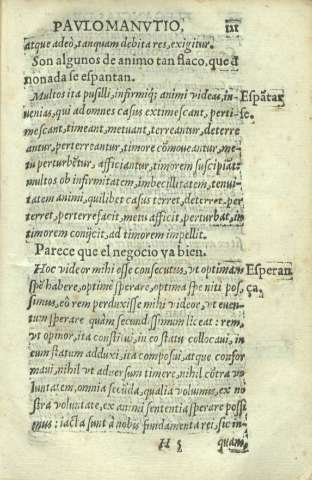 PAVLO MANVTIO,
atque adeò, tanquam debita res, exigitur.
Son algunos de animo tan flaco, que d
nonada se espantan.
Multos ita pusilli, infirmiq; animi videas, in-
uenias, qui ad omnes casus extimescant, perti-
mescant, timeant, metuant, terreantur, deterre
antur, perterreantur, timore cōmoueantur, me-
tu perturbētur, afficiantur, timorem suscipiāt:
multos ob infirmitatem, imbecillitatem, tenui-
tatem animi, quilibet casus terret, deterret, per
terret, perterrefacit, metu afficit, perturbat, in
timorem conijcit, ad timorem impellit.
Espātar
se.
Parece que el negocio va bien.
Hoc videor mihi esse consecutus, vt optimam
spē habere, optimè sperare, optima spe niti pos
simus, eò rem perduxisse mihi videor, vt euen-
tum sperare quàm secundissimum liceat: rem,
vt opinor, ita constitui, in eo statu collocaui, in
eum statum adduxi, ita composui, atque confor
maui, nihil vt aduersum timere, nihil cōtra vo
luntatem, omnia secūda, qualia volumus, ex no
stra voluntate, ex animi sententia sperare possi
mus: iacta sunt à nobis fundamenta rei, sic in-
Esperan
ça.
H
quam